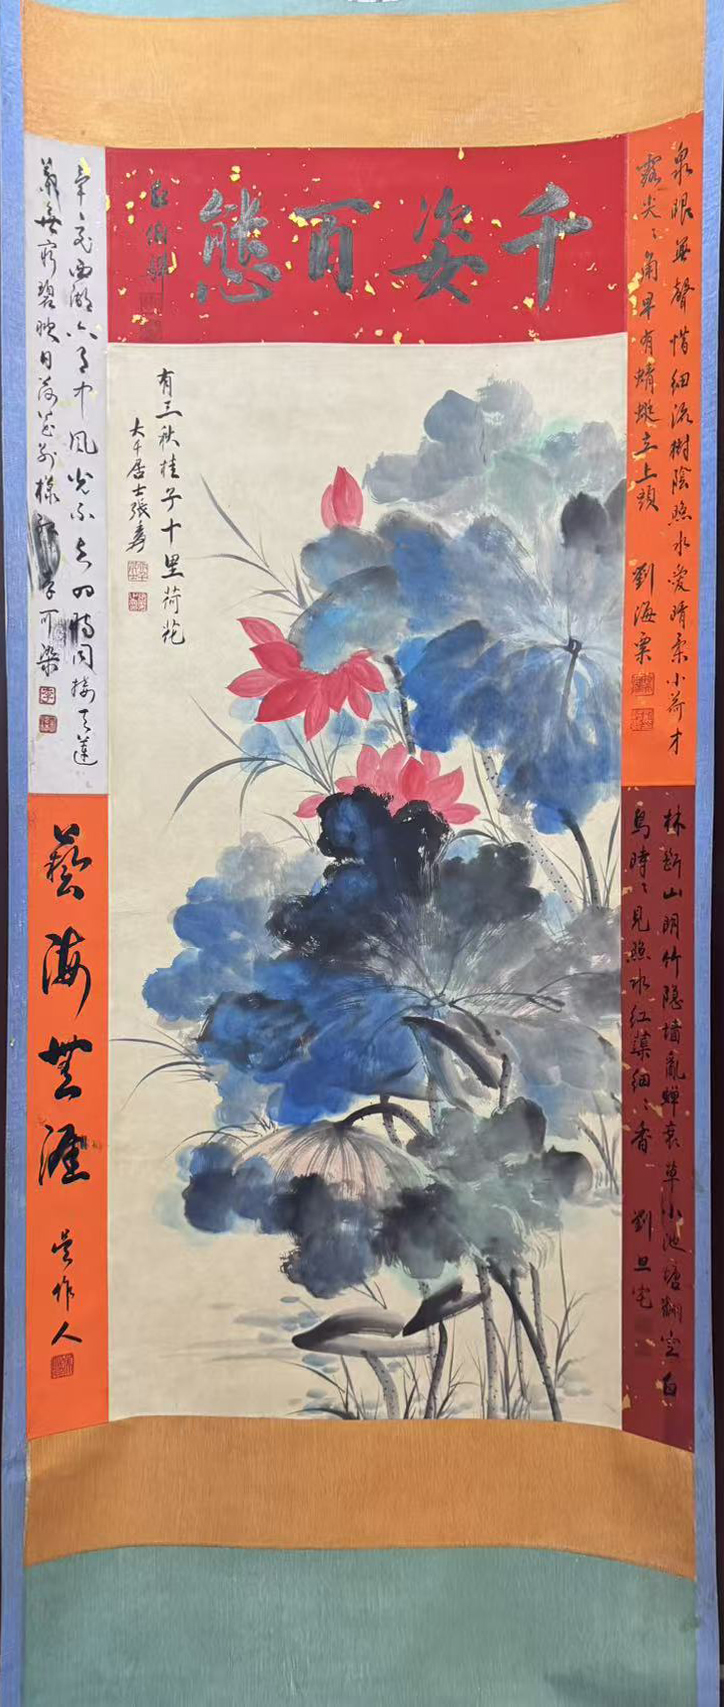 千姿百態
泉眼無聲惜細流樹陰照水愛晴柔小荷才
露尖〻角早有蜻蜓立上頭 劉海粟
林斷山明竹隱墻亂蟬衰草小池塘翻空白
鳥時〻見照水紅蕖細〻香 劉旦宅
有三秋桂子十里荷花
大千居士張爰
畢竟西湖六月中風光不與四時同接天蓮
葉無窮碧映日荷花別樣 李可染
藝海無涯
吳作人